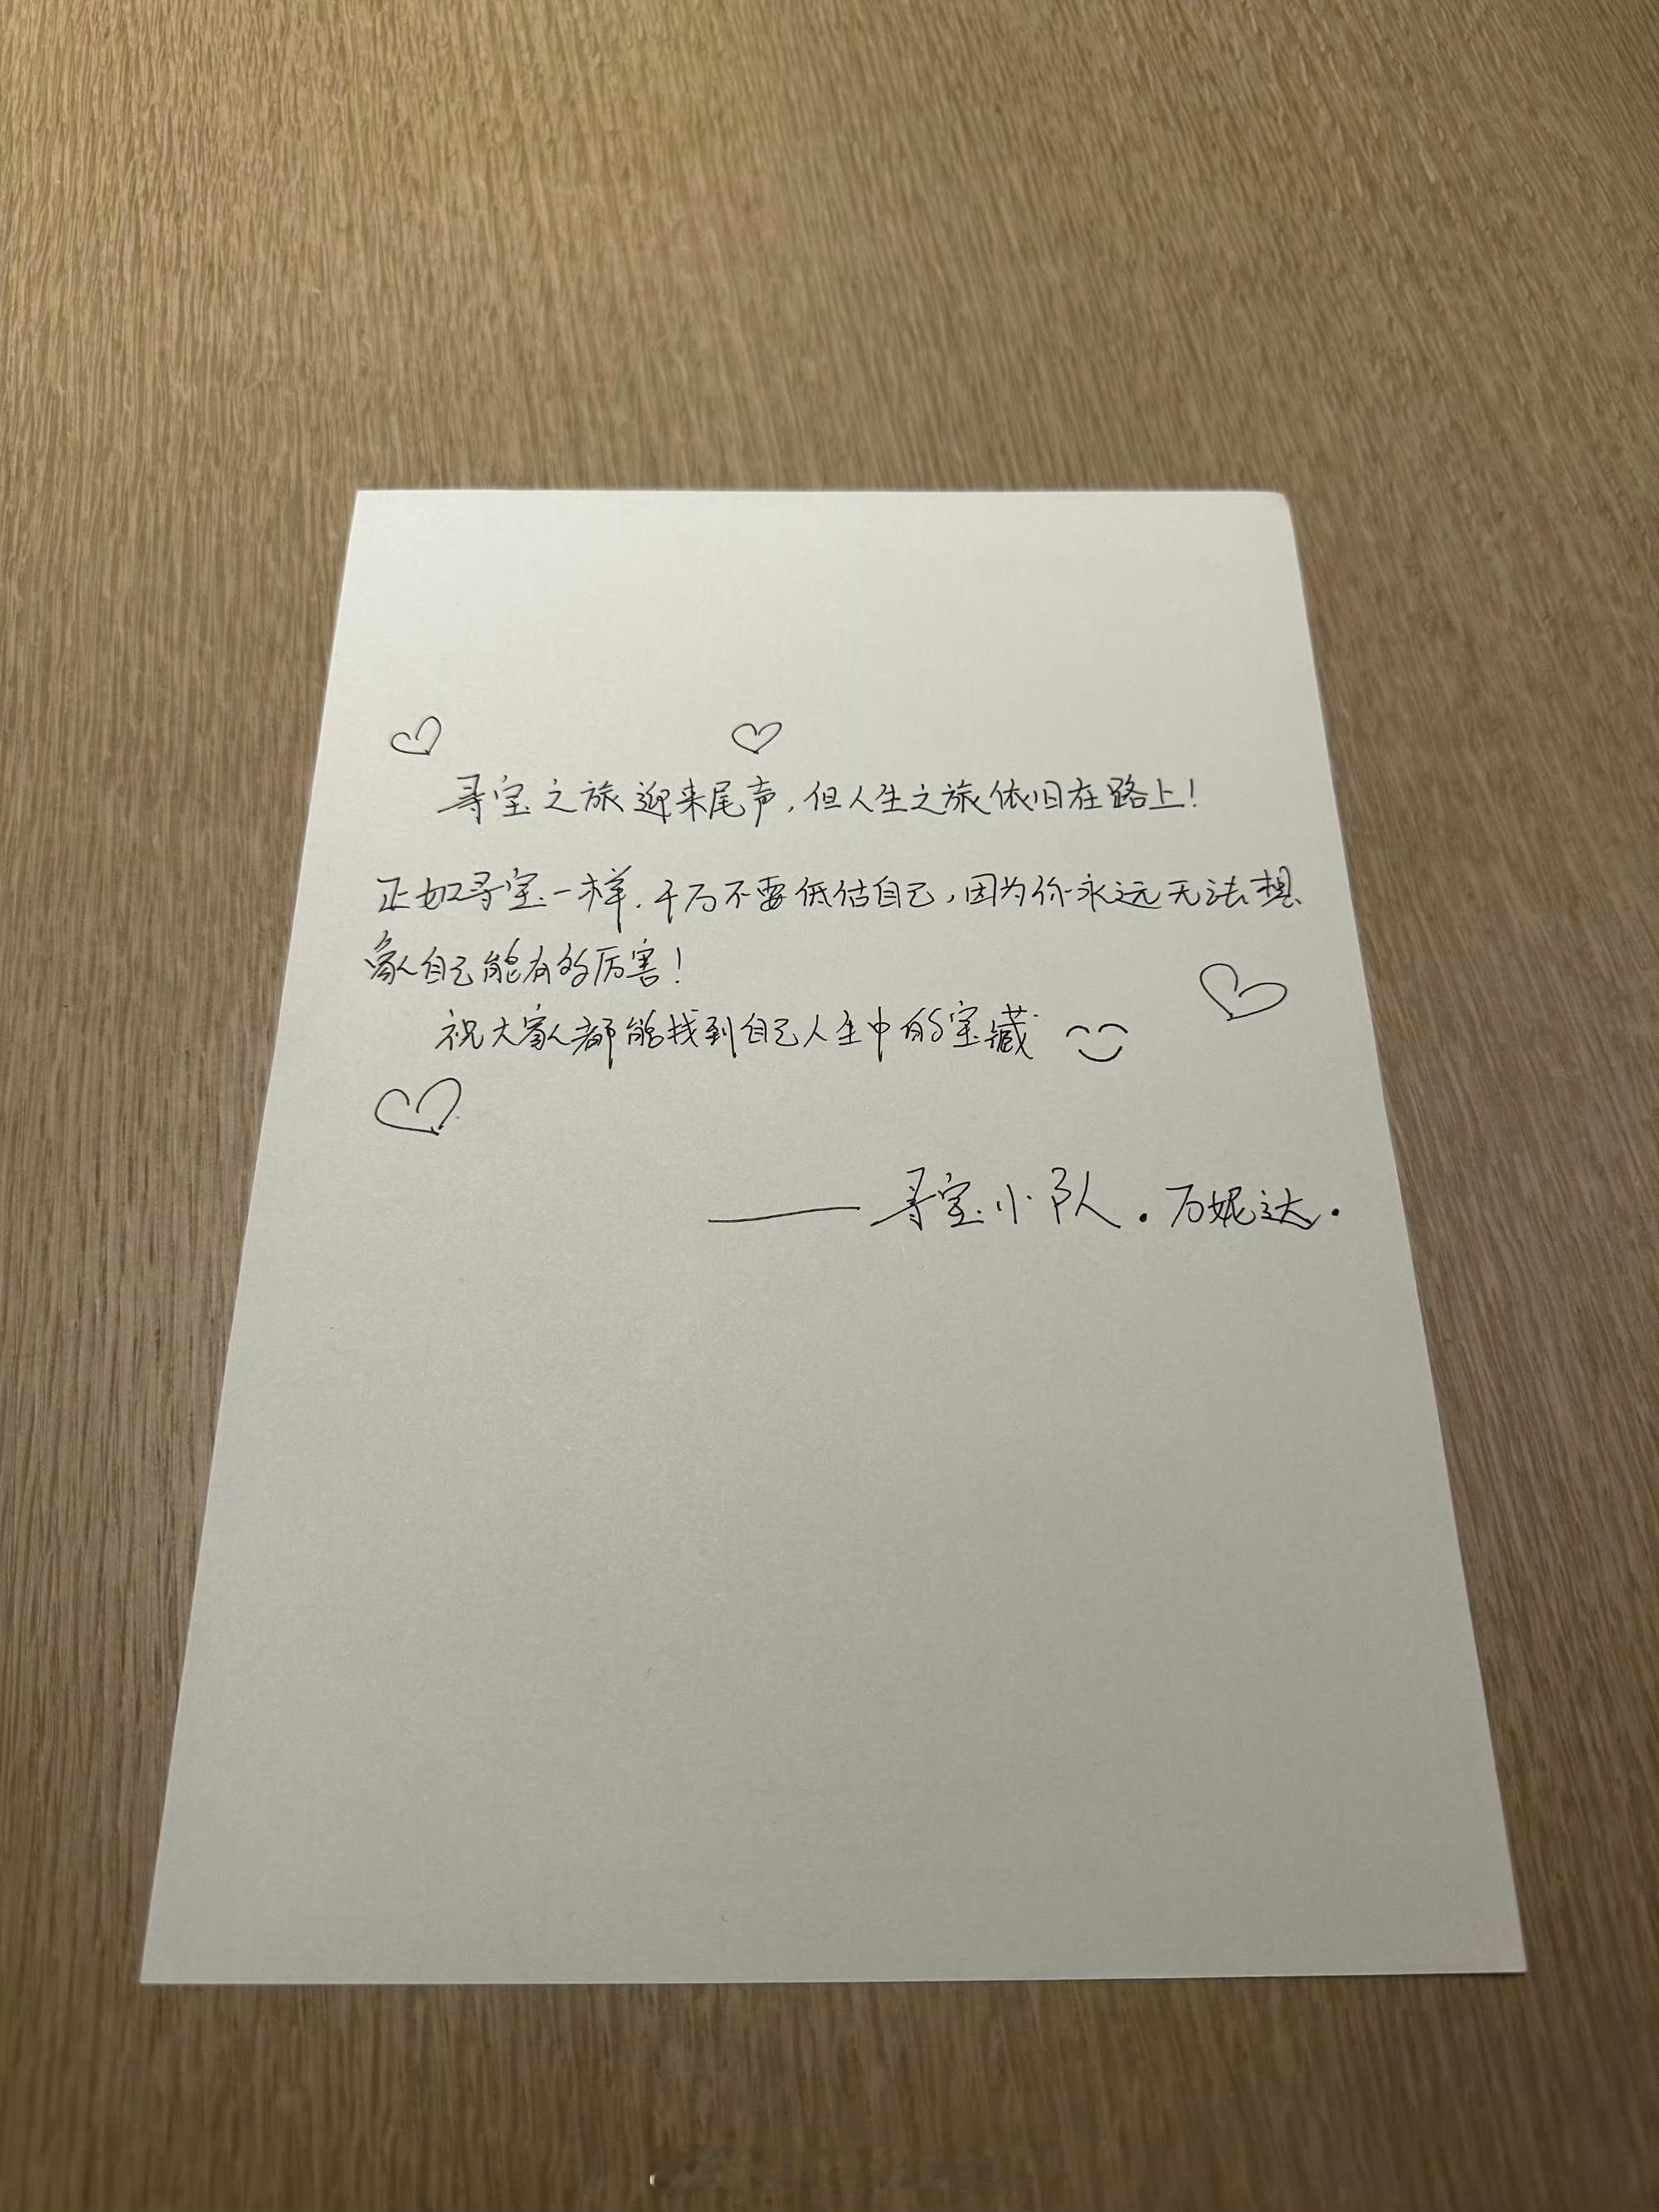 寻宝之旅迎来尾声,但人生之旅依旧在路上!
正如寻宝一样.千万不要低估自己,因为你永远无法想
象自己能有多厉害!
祝大家都能找到自己人生中的宝藏
——寻宝小队.万妮达.